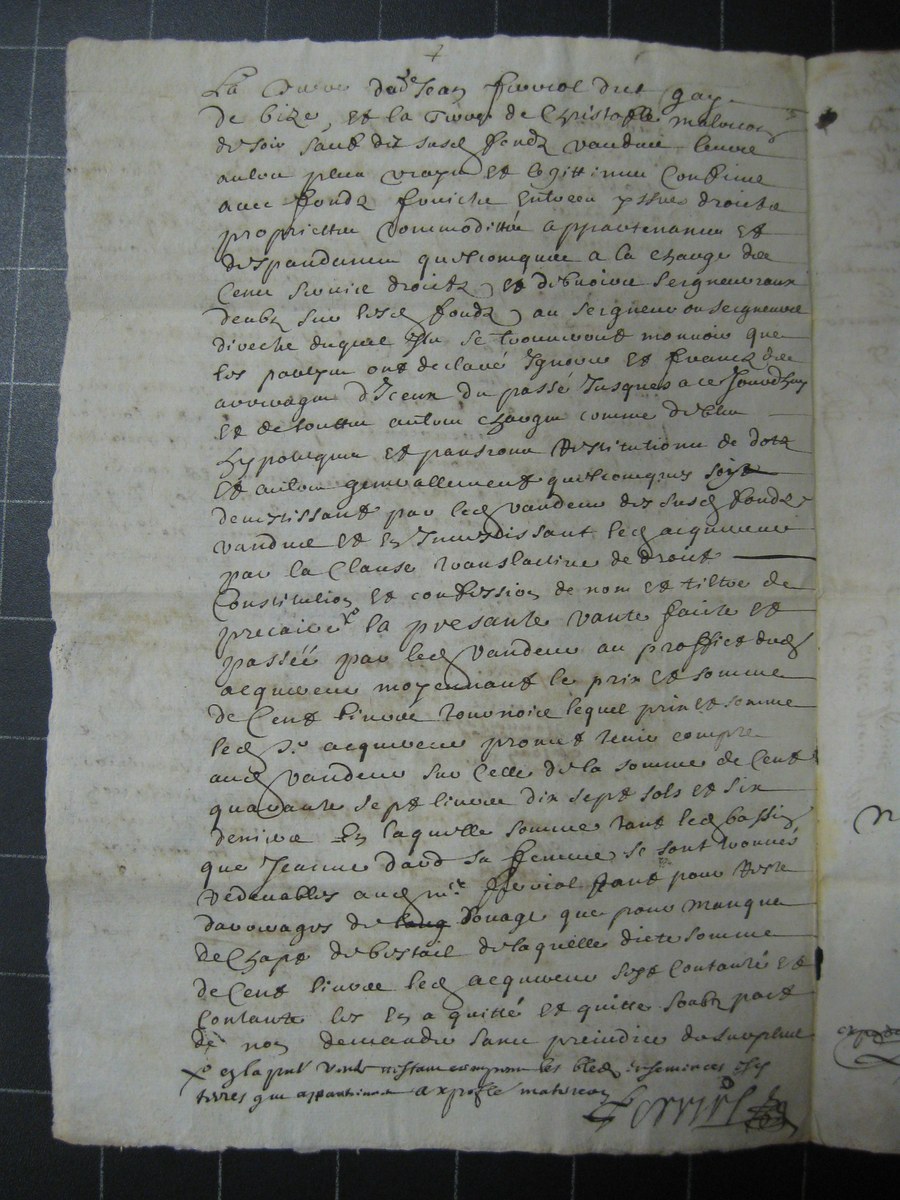 La Terre dud Jean ferriol dit gay
de bize, et la Terre de Christofle malorcon
de soir sauf desd susd fondz vandus leurs
autres plus vrays et legittimes Confins
avec fondz franchises Entrées yssues droictz
proprietés Commodittés appartenances et
despandances quelconques a la charge des
Cens service droictz et debvoirs seigneuriaux
deubz sur lesd fondz au seigneur ou seigneurs
direchz duquel Ilz se trouveront mouvoir que
les parties ont declairé Ignorer et francz des
arreirages d'Iceux du passé Jusques a ce Jourdhuy
Et de touttes autres charges comme debtes
hypoteques et pansions Restitutions de dotz
Et autres generallement quelconques soyt
demettissant par led vandeur desd susd fondz
vandus et En Investissant led acquereur
par la Clause translactive de droict
Constitution et confession de nom et tiltre de
precaire xo la presante vante faite et
passée par led vandeur au proffict dud
acquereur moyennant le prix et somme
de Cent livres tournois lequel prix et somme
led sr acquereur promet tenir compte
aud vandeur sur Celle de la somme de Cent
quarante sept livres dix sept sols et six
deniers En laquelle somme tant led bassin
que Jeanne david sa femme se sont trouvés
Redevables aud mre fferriol tant pour Reste
darreirages de louage que pour manque
de Chapt de bestail de laquelle dicte somme
de Cent livres led acquereur soyt Contanté et
Contante les En a quitté et quitte soubz pact
de non demander sans prejudice du surplus
xo En la pnt vante nestant compris les bleds Ensemencés esd
terres que appartienne a xpofle malorcon
Ferriol